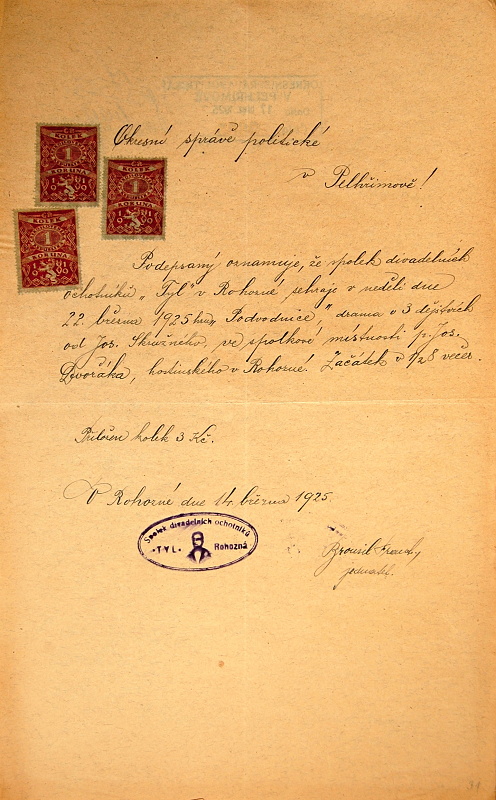 Okresní správě politické
v Pelhřimově!
Podepsaný oznamuje, že spolek divadelních
ochotníků „Tyl" v Rohozné sehraje v neděli dne
22. března 1925 hru „Podvodnice" drama o 3 dějstvích
od Jos. Skružného, ve spolkové místnosti p. Jos.
Dvořáka, hostinského v Rohozné. Začátek v 1/2 8 večer.
Přiložen kolek 3 Kč.
V Rohozné dne 14. března 1925.
Spolek divadelních ochotníků
"TYL" Rohozná
jednatel.
KOLEK
1
KORUNA
KOLEK
1
KORUNA
KOLEK
1
KORUNA